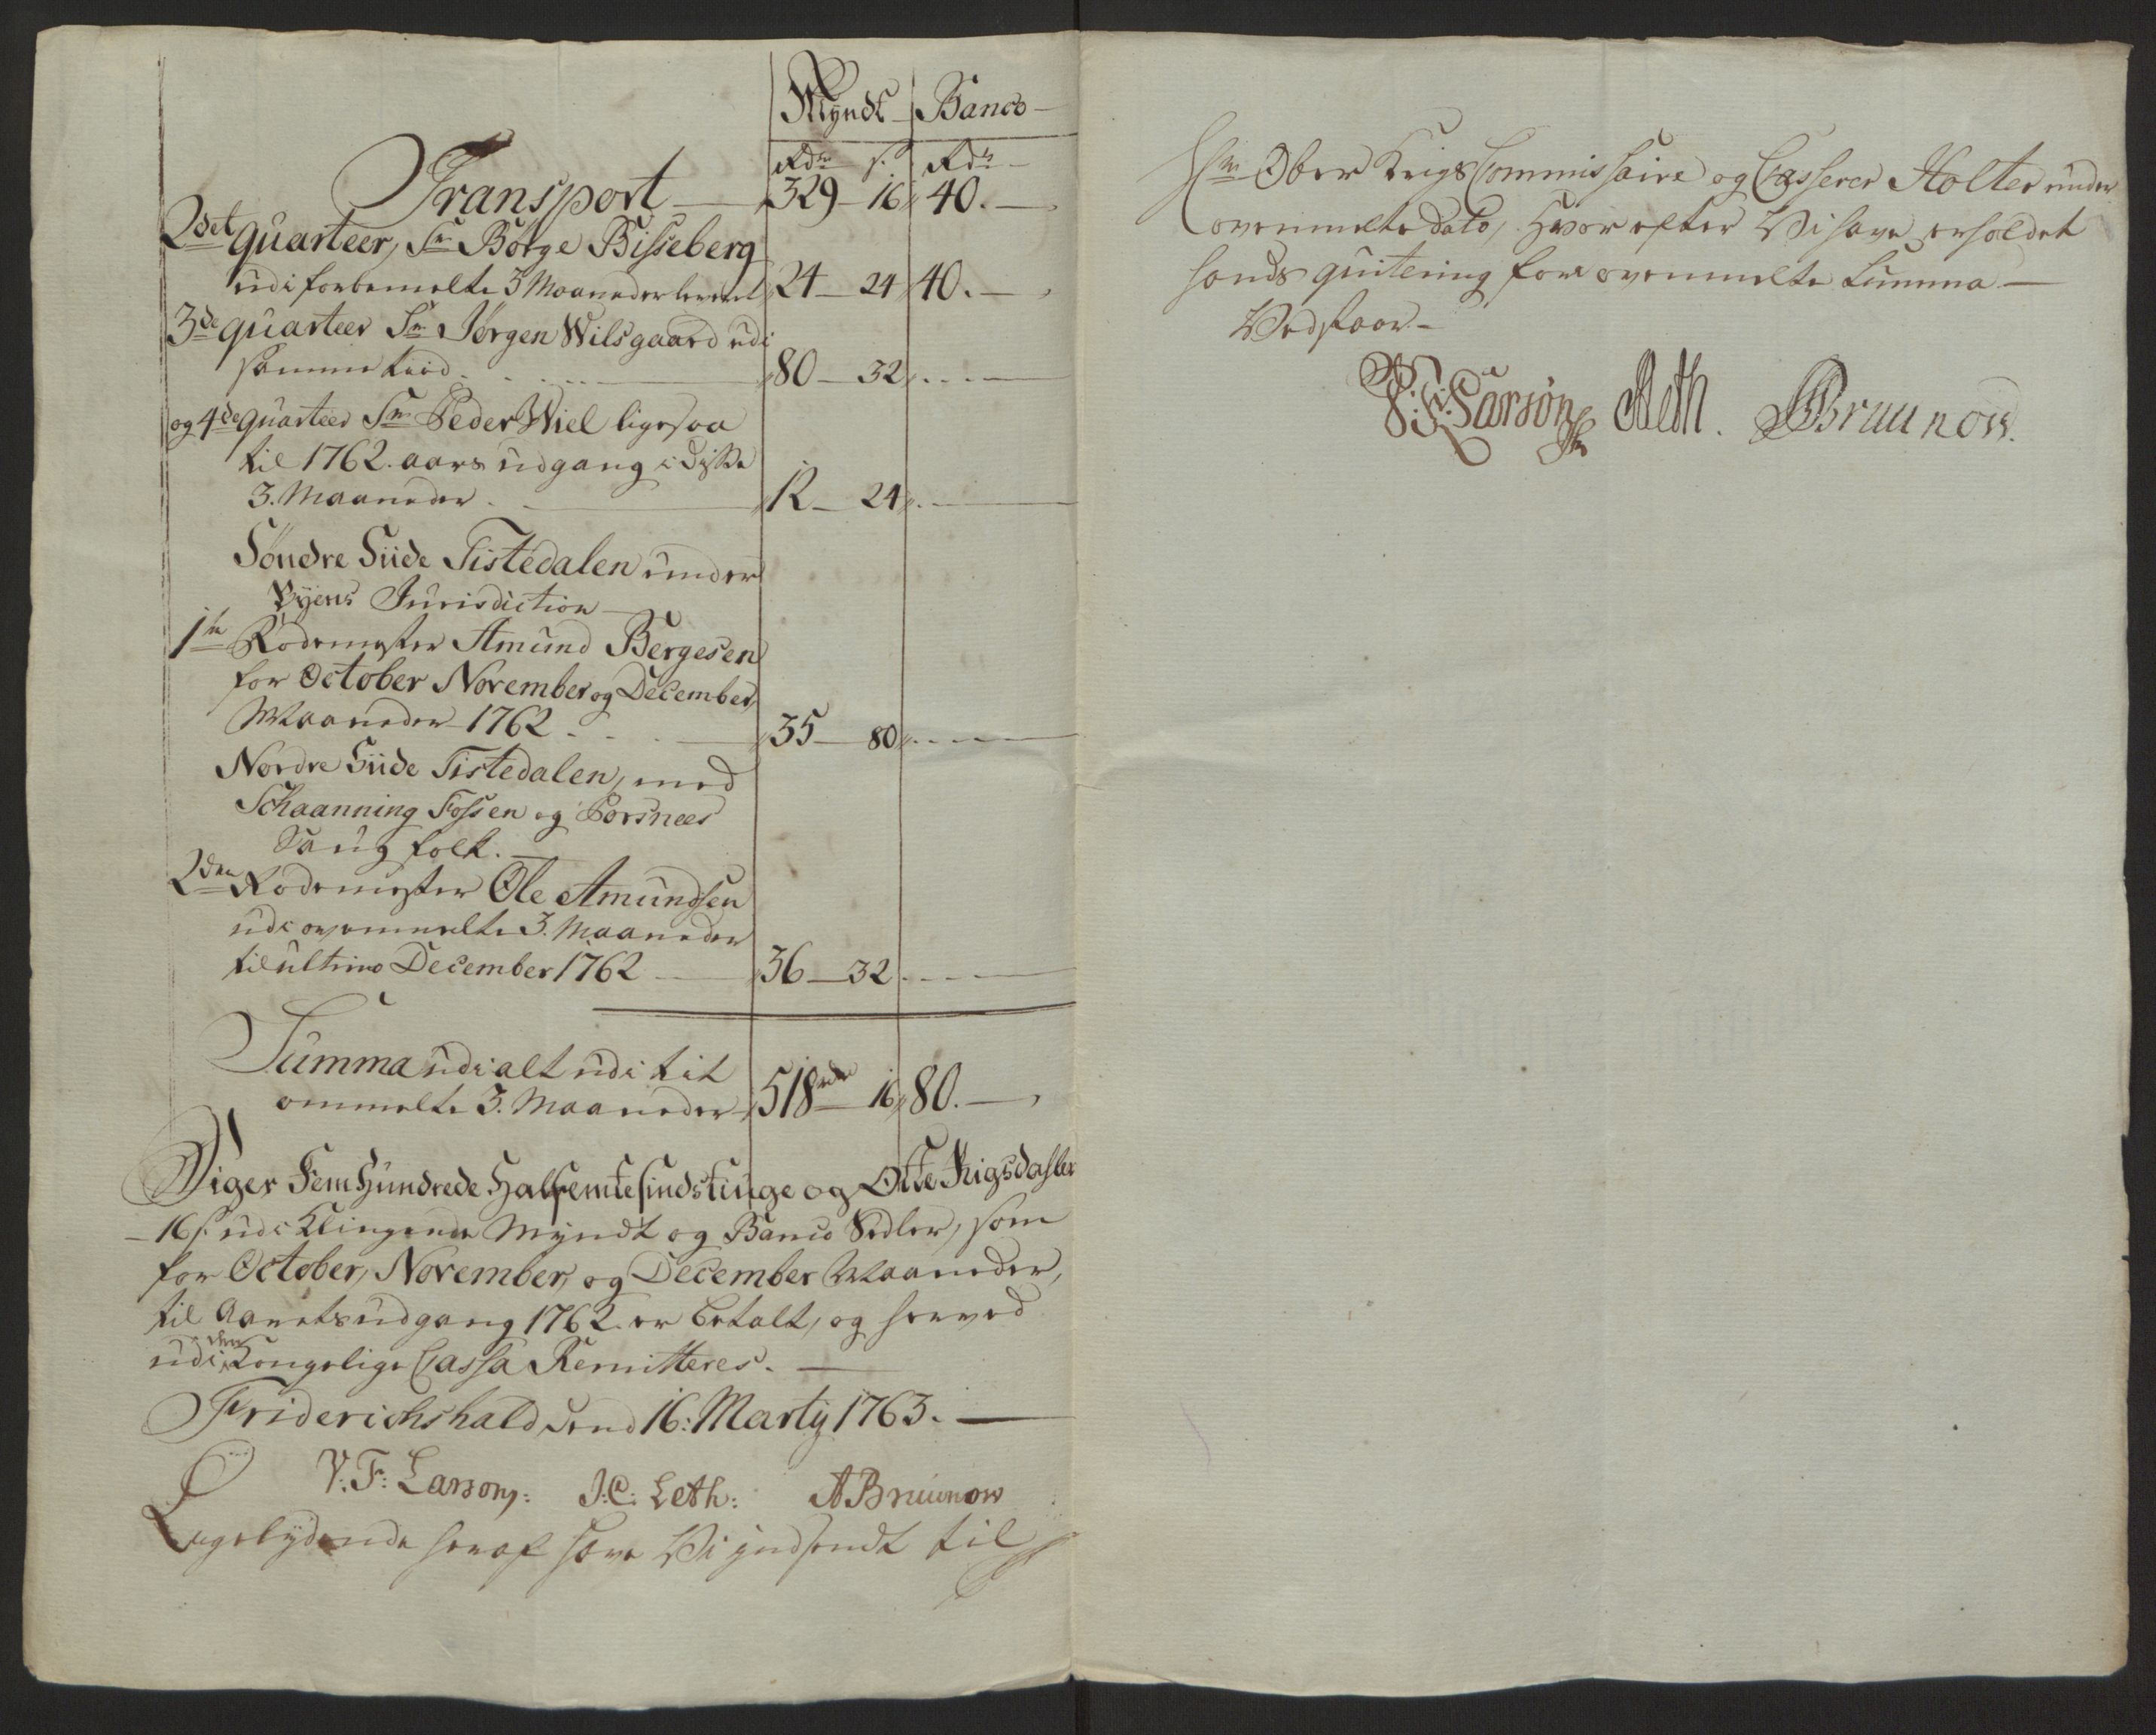 Myndt Banco
Rdr s. Rdr
Transport 329 16 40.
2det quarteer, Sr Børge Bisseberg
udi forbemelte 3 Maaneder leveret 24 24 40.
3de quarteer Sr Jørgen Wilsgaard udi
samme tiid 80 32
og 4de quarteer Sr Peder Wiel ligesaa
til 1762. aars udgang i disse
3. Maaneder 12 24
Søndre Siide Tistedalen under
Byens Jurisdiction
1te Rodemester Amund Bergesen
for October November og December
Maaneder 1762 35 80
Nordre Siide Tistedalen, med
Schaanning Fossen og Porsnees
Saug folk.
2den Rodemester Ole Amundsen
udi ovenmelte 3. Maaneder
til ultimo December 1762 36 32
Summa udi alt udi tit
ommelte 3. Maaneder 518 rdr 16 80.
Siger Fem Hundrede Halfemtesindstiuge og Otte Rigsdahler
16 s. udi Klingende Myndt og Banco Sedler, som
for October, November, og December Maaneder,
til Aarets udgang 1762 er betalt, og herved
udi den Kongelige Cassa Remitteres.
Friderichshald dend 16: Martij 1763.
V: F: Larson: J: C: Leth: A Bruunow
Ligelydende heraf have Vi indsendt til
Hr Ober Krigs Commissaire og Casserer Holter under
ovenmelte dato, hvor efter Vi have erholdet
hands quitering for ovenmelte Summa
Vedstaar
V: F: Larson JC Leth. A Bruunow.